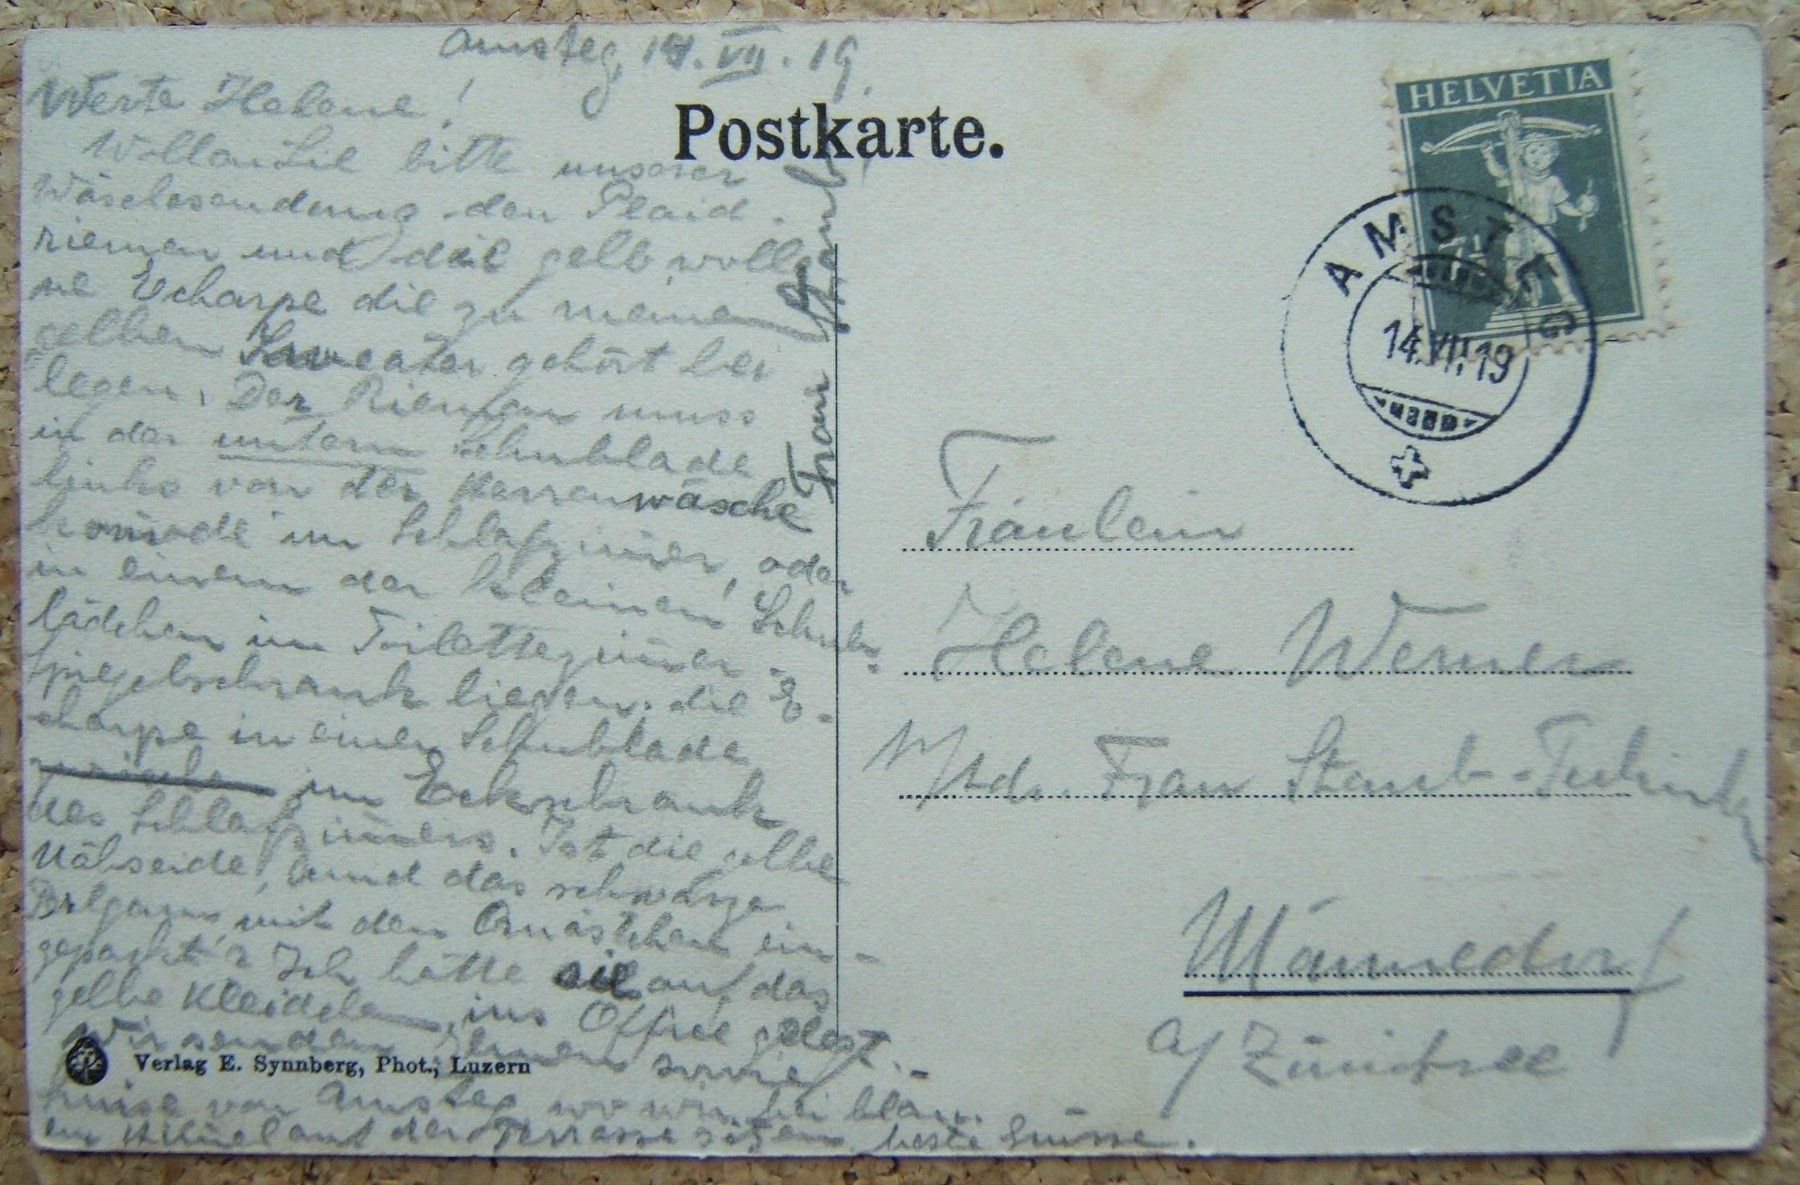 Amsteg, 14. VII. 19.
Werte Helene!
Wollen Sie bitte unserer
Wäschesendung den Plaid-
riemen und die gelb wolle-
ne Echarpe die zu meinem
gelben Sweater gehört bei
legen. Der Riemen muss
in der untern Schublade
links von der Herrenwäsche
komode im Schlafzimer, oder
in einem der kleinen Schub-
lädchen im Toilettezimer-
Spiegelschrank liegen. die E-
charpe in einer Schublade
im Eckschrank
des Schlafzimers. Ist die gelbe
Nähseide, und das schwarze
mit den Quästchen ein-
gepackt? Ich hätte sie auf das
gelbe Kleidchen ins Office gelegt.
Wir senden Ihnen sowie
von Amsteg, wo wir bei blau-
em Himel auf der Terrasse sitzen, beste Grüsse.
Frau Staub
Postkarte.
HELVETIA
7½
AMSTEG
14.VII.19
Fräulein
Helene Werner
Adr. Frau Staub-
Männedorf
a/ Zürichsee
Verlag E. Synnberg, Phot., Luzern